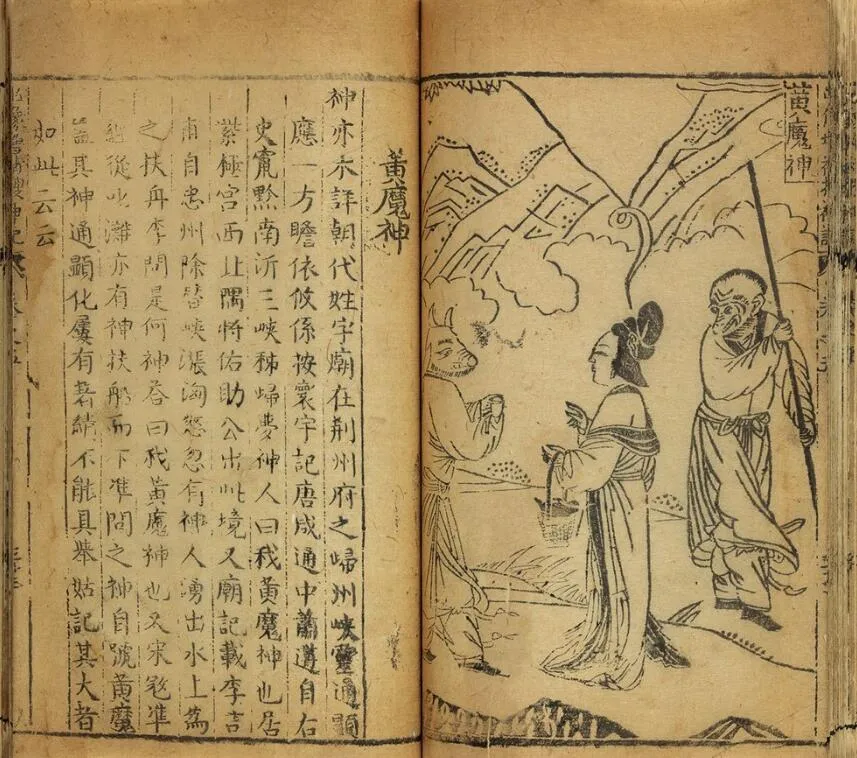 黃魔神
黃魔神
神亦不詳朝代姓字廟在荆州府之歸州峽靈通顯
應一方瞻依攸係按寰宇記唐咸通中蕭遘自右
史竄黔南泝三峽秭歸夢神人曰我黃魔神也居
紫極宮西北隅將佑助公出此境又廟記載李吉
甫自忠州除替峽漲洶怒忽有神人湧出水上為
之扶舟李問是何神荅曰我黃魔神也又宋寇準
經從叱灘亦有神扶船而下準問之神自號黃魔
盖其神通顯化屢有著績不能具舉姑記其大者
如此云云